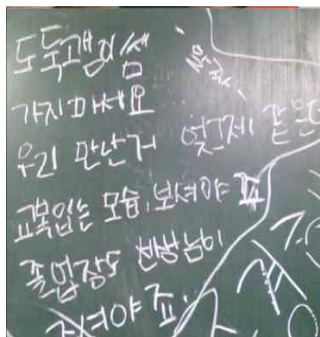 도둑괭이쌤
가지마세요
우리 만난거 엊그제 같은데
교복입는 모습, 보셔야죠
졸업장도 선생님이
주셔야죠..